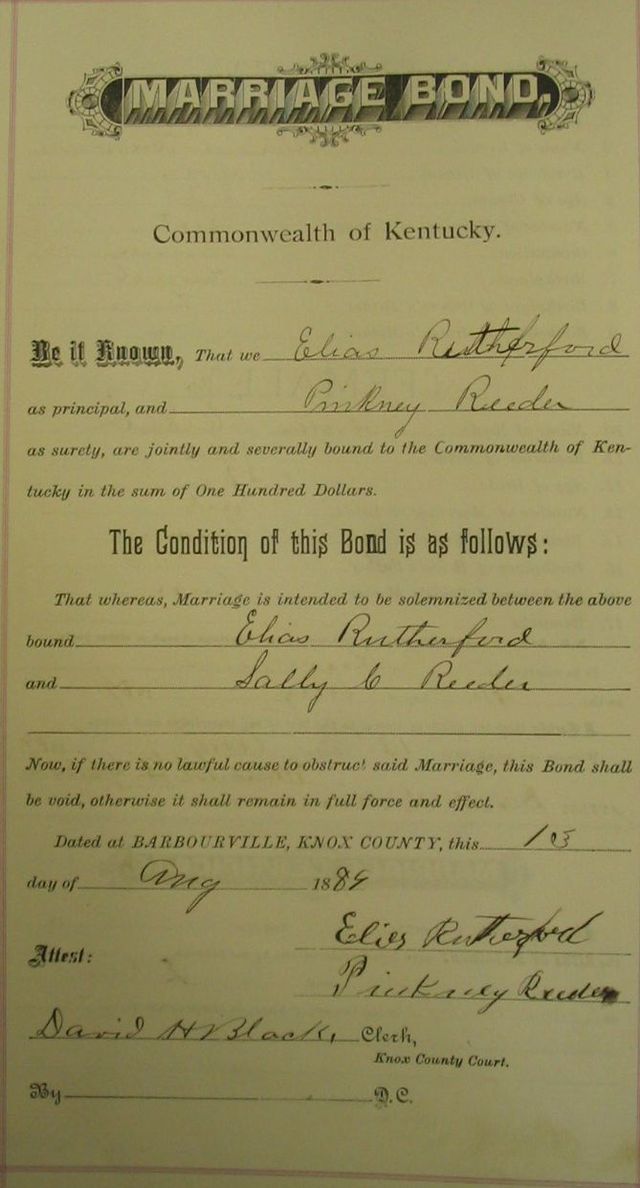 MARRIAGE BOND,
Commonwealth of Kentucky.
Be it Known, That we Elias Rutherford
as principal, and Pinkney Reeder
as surety, are jointly and severally bound to the Commonwealth of Ken-
tucky in the sum of One Hundred Dollars.
The Condition of this Bond is as follows:
That whereas, Marriage is intended to be solemnized between the above
bound Elias Rutherford
and Sally C Reeder
Now, if there is no lawful cause to obstruct said Marriage, this Bond shall
be void, otherwise it shall remain in full force and effect.
Dated at BARBOURVILLE, KNOX COUNTY, this
day of Aug 188
Elies Rutherford
Attest:
Pinkney Reeder
David H Black, Clerk,
Knox County Court.
By D.C.